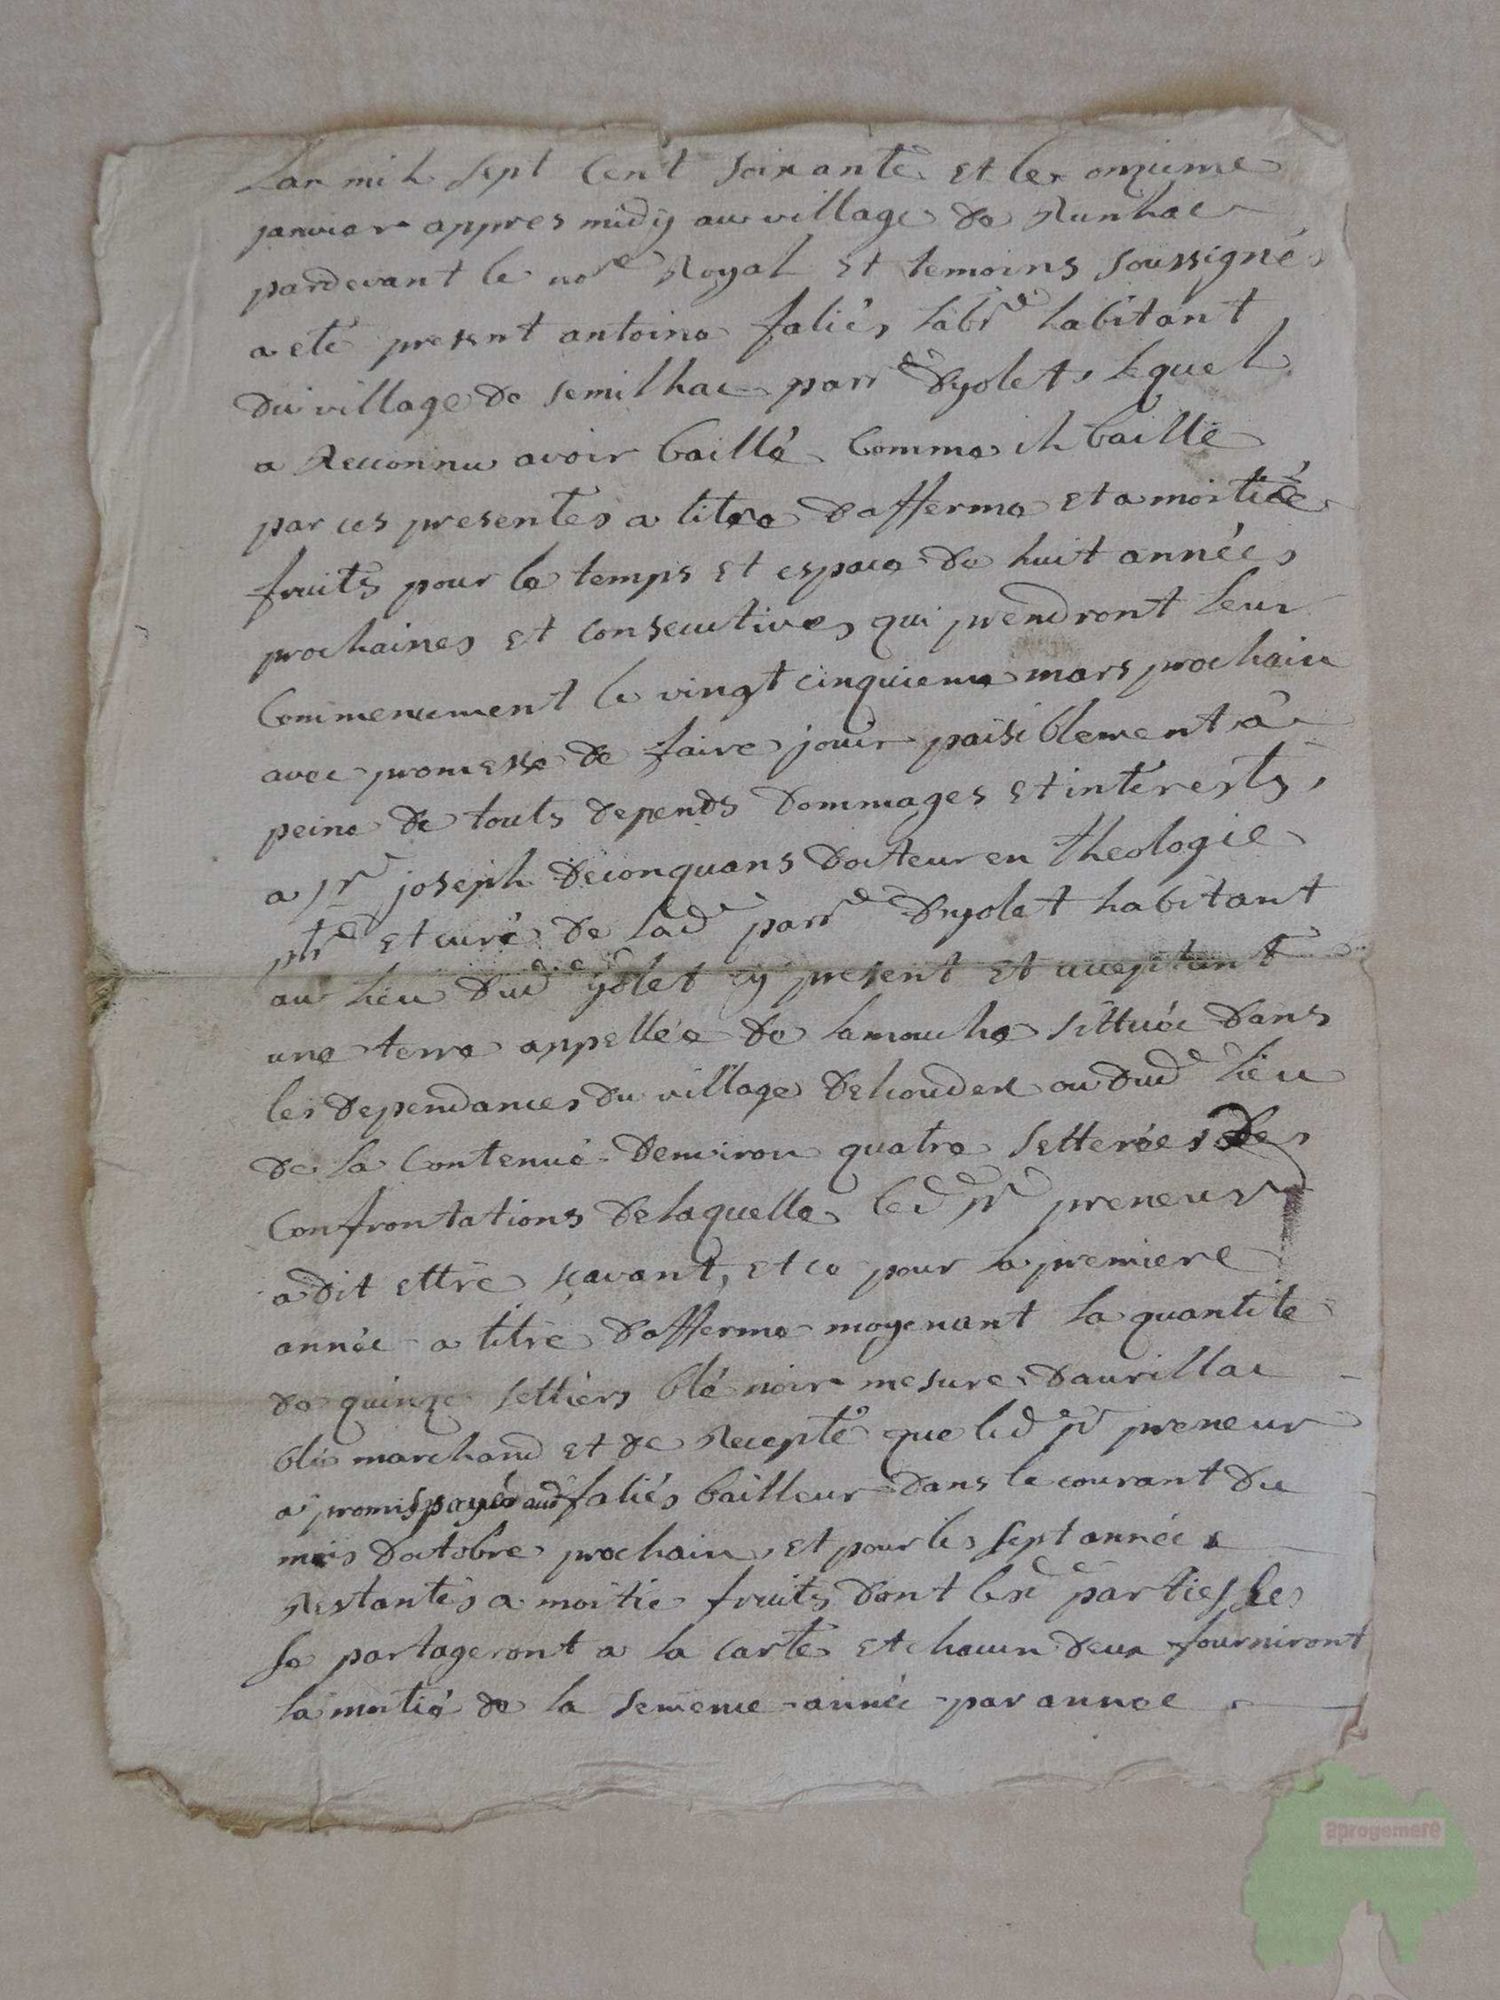 Lan mil sept Cent soixante et le onzieme
janvier appres midy au village de Runhac
pardevant le no.re Royal et temoins soussignés
a eté present antoine faliés lab.r habitant
du village de semilhac parr.e dyolet, lequel
a Reconnu avoir baillé Comme il baille
par ces presentes a titre dafferme et a moitié
fruits pour le temps et espace de huit années
prochaines et consecutives qui prendront leur
Commencement le vingt cinquieme mars prochain
avec promesse de faire jouir paisiblement a
peine de touts depends dommages et intérests,
a Sr joseph deconquans docteur en theologie
ptre et curé de lad.e parr.e dyolet habitant
au lieu dud. yolet cy present et acceptant
une terre appellée de lamouche sittuée dans
les dependances du village de dud.e lieu
de la Contenue denviron quatre setterées des
Confrontations delaquelle led. sr preneur
a dit ettre sçavant, et ce pour la premiere
année a titre dafferme moyenant la quantite
de quinze settiers blé noir mesure daurillac
blé marchand et de Recepte que led. sr preneur
a promis payér aud. faliés bailleur dans le courant du
mois doctobre prochain, et pour les sept années
Restantes a moitie fruits dont lesd. parties le
se partageront a la carte et chacun deux fourniront
la moitié de la semence année par annee
aprogemere